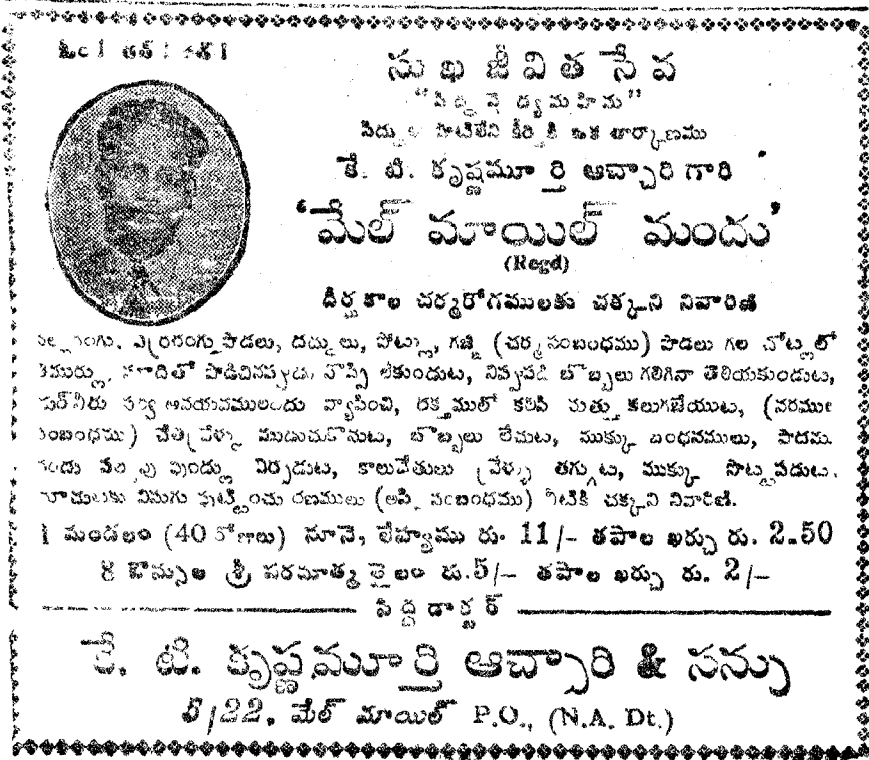 ఓం! తత్! సత్!
సుఖజీవిత సేవ
"సిద్ధవైద్యమహిమ"
సిద్ధుల సాటిలేని కీర్తికి ఇక తార్కాణము
కే. టి. కృష్ణమూర్తి ఆచ్చారి గారి
'మేల్ మాయిల్ మందు'
(Regd)
దీర్ఘకాల చర్మరోగములకు చక్కని నివారిణి
ఎర్రరంగు పొడలు, దద్దులు, పోట్లు, గజ్జి (చర్మసంబంధము) పొడలు గల చోట్లలో
తిముర్లు, సూదితో పొడిచినప్పుడు నొప్పి లేకుండుట, నిప్పుపడి బొబ్బలు గలిగినా తెలియకుండుట,
సర్వ అవయవములందు వ్యాపించి, రక్తములో కలిసి మత్తు కలుగజేయుట, (నరముల
సంబంధము) చేతివ్రేళ్ళు ముడుచుకొనుట, బొబ్బలు లేచుట, ముక్కు బంధనములు, పాదము
నందు పుండ్లు ఏర్పడుట, కాలుచేతులు వ్రేళ్ళు తగ్గుట, ముక్కు సొట్టపడుట.
విసుగు పుట్టించు రణములు (అస్థి సంబంధము) వీటికి చక్కని నివారిణి.
1 మండలం (40 రోజులు) నూనె, లేహ్యము రు. 11/- తపాల ఖర్చు రు. 2-50
8 ఔన్సుల శ్రీ పరమాత్మ తైలం రు.5/- తపాల ఖర్చు రు. 2/-
సిద్ధ డాక్టర్
కే. టి. కృష్ణమూర్తి ఆచ్చారి & సన్సు
5/22, మేల్ మాయిల్ P.O., (N.A. Dt.)